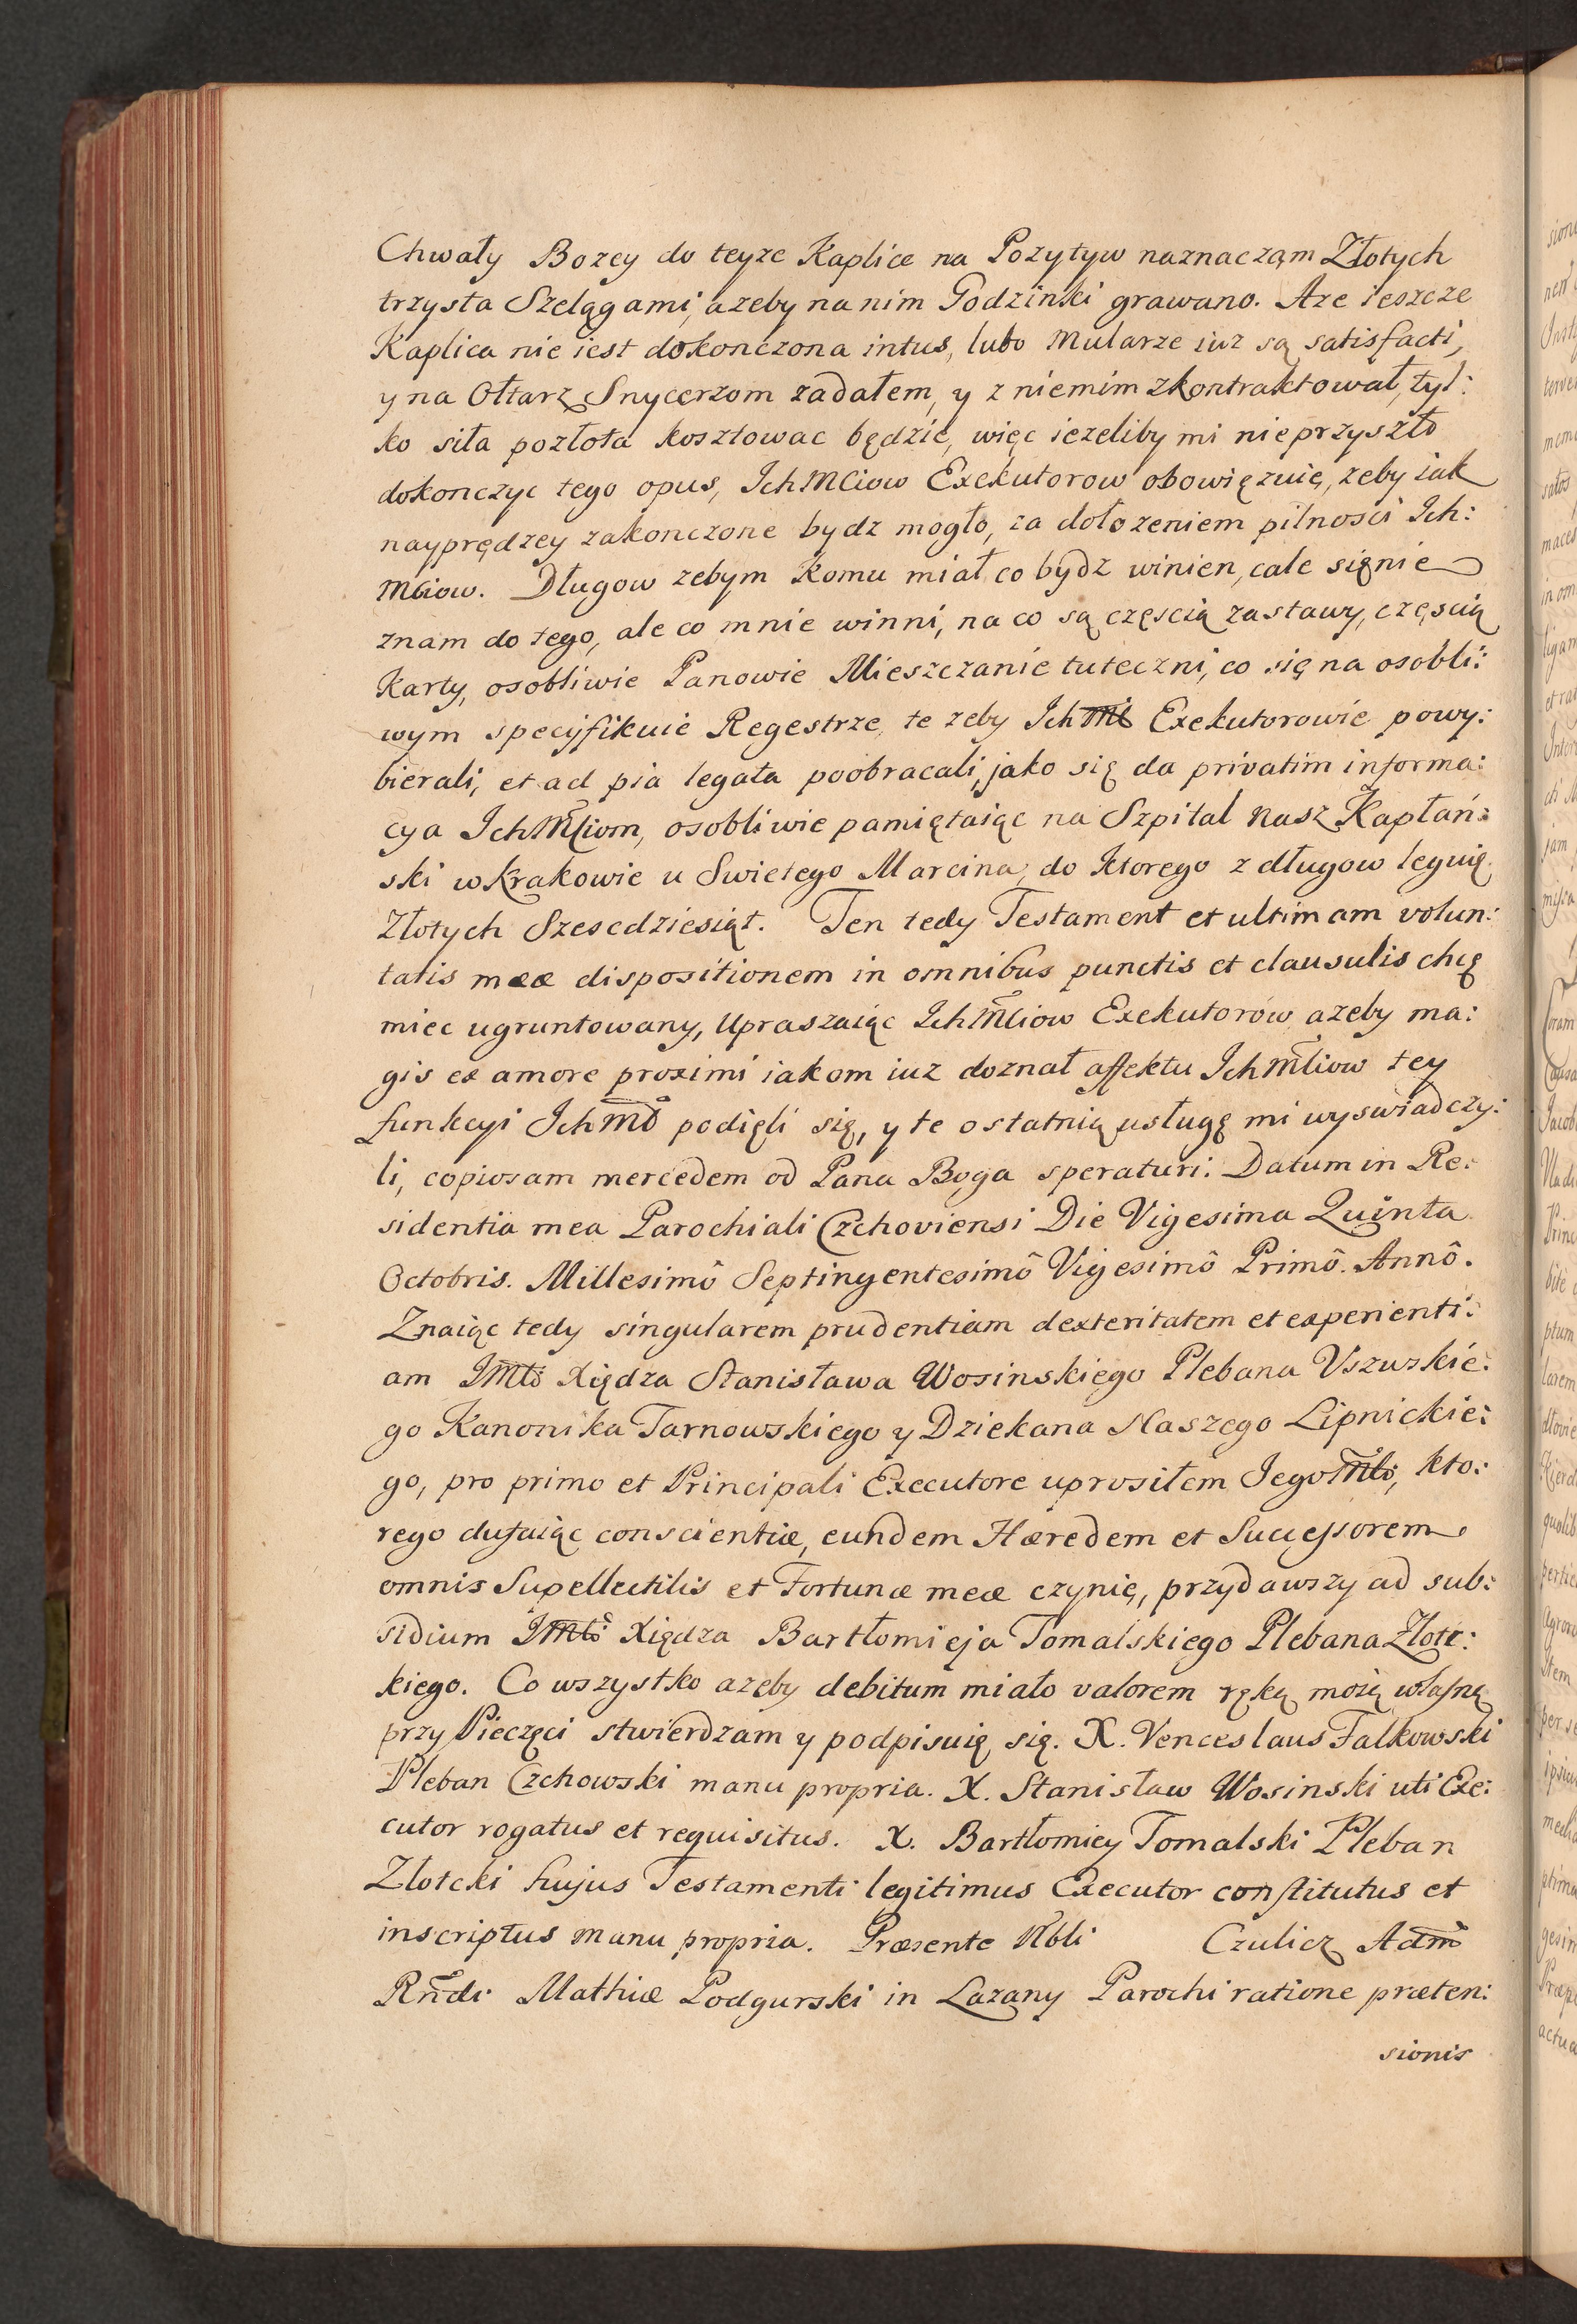 Chwały Bozey do teyze Kaplice na Pozytyw naznacząm Złotych
trzysta Szelągami, azeby na nim Godzinki grawano. Aze ieszcze
Kaplica nie iest dokonczona intus, lubo Mularze iuz są satisfacti,
y na Ołtarz Snycerzom zadałem, y z niemim zkontraktował, tyl:
ko siła pozłota kosztowac będzie, więc iezeliby mi nieprzyszło
dokonczyc tego opus, IchMciow Exekutorow obowięzuię, zeby iak
nayprędzey zakonczone bydz mogło, za dołozeniem pilnosci Ich:
Mciow. Długow zebym komu miał co bydz winien, cale się nie
znam do tego, ale co mnie winni, na co są częscią zastawy, częscią
Karty, osobliwie Panowie Mieszczanie tuteczni, co się na osobli:
wym specyfikuie Regestrze, te zeby Ich Mć Exekutorowie powy:
bierali, et ad pia legata poobracali, jako się da privatim informa:
cya IchMciom, osobliwie pamiętaiąc na Szpital Nasz Kapłań:
ski w Krakowie u Swietego Marcina, do ktorego z długow leguię
Złotych Szescdziesiąt. Ten tedy Testament et ultimam volun:
tatis meæ dispositionem in omnibus punctis et clausulis chcę
miec ugruntowany, Upraszaiąc IchMciow Exekutorów, azeby ma:
gis ex amore proximi iakom iuz doznał affektu IchMciow tey
funkcyi IchMć podięli się, y te ostatnią usługę mi wyswiadczy:
li, copiosam mercedem od Pana Boga speraturi. Datum in Re:
sidentia mea Parochiali Czchoviensi Die Vigesima Quinta
Octobris. Millesimô Septingentesimô Vigesimô Primô. Annô.
Znaiąc tedy singularem prudentiam dexteritatem et experienti:
am JMci Xiędza Stanisława Wosinskiego Plebana Vszuskie:
go Kanonika Tarnowskiego y Dziekana Naszego Lipnickie:
go, pro primo et Principali Executore uprosiłem JegoMci, kto:
rego dufaiąc conscientiæ, eundem Hæredem et Successorem
omnis Supellectilis et Fortunæ meæ czynię, przydawszy ad sub:
sidium JMci Xiędza Bartłomieja Tomalskiego Plebana Złote:
kiego. Co wszystko azeby debitum miało valorem ręką moią własną
przy Pieczęci stwierdzam y podpisuię się. X. Venceslaus Falkowski
Pleban Czchowski manu propria. X. Stanisław Wosinski uti Exe:
cutor rogatus et requisitus. X. Bartłomiey Tomalski Pleban
Złotcki hujus Testamenti legitimus Executor constitutus et
inscriptus manu propria. Præsente Nbli Czulicz Actm̃
Rñdi Mathiæ Podgurski in Lazany Parochi ratione præten:
sionis